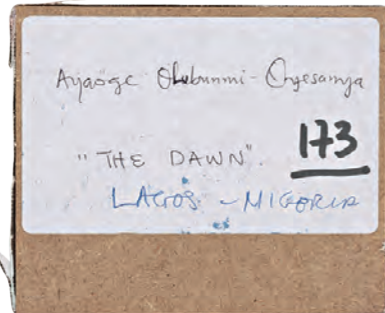 Ayaoge Olubunmi-Oyesanya
"THE DAWN".
173
LAGOS - NIGERIA